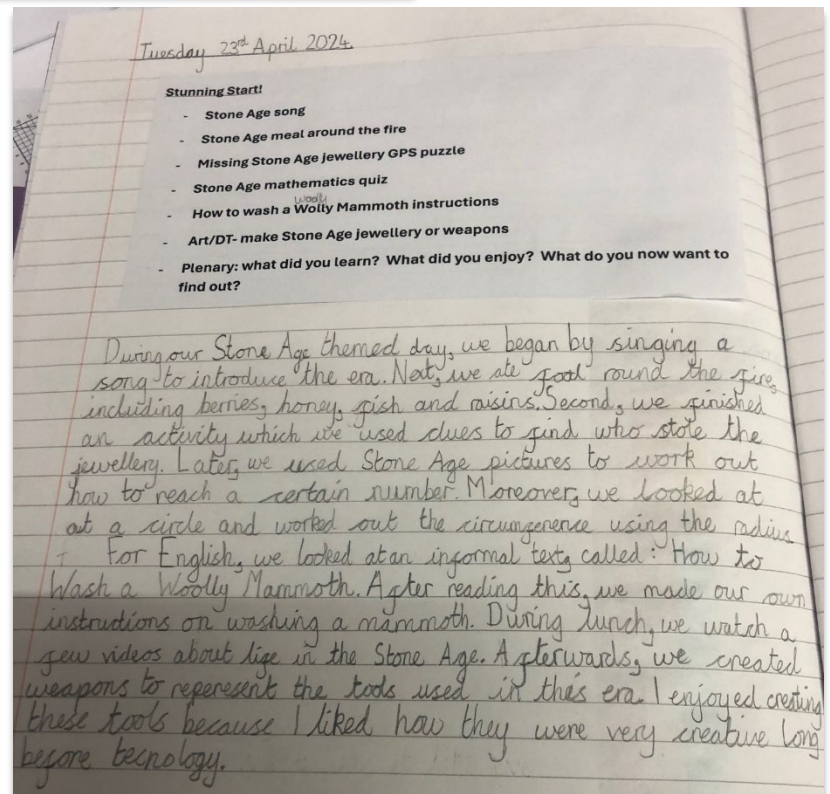 Tuesday 23rd April 2024
Stunning Start!
- Stone Age song
- Stone Age meal around the fire
- Missing Stone Age jewellery GPS puzzle
- Stone Age mathematics quiz
woolly
- How to wash a Wolly Mammoth instructions
- Art/DT- make Stone Age jewellery or weapons
- Plenary: what did you learn? What did you enjoy? What do you now want to
find out?
During our Stone Age themed day, we began by singing a
song to introduce the era. Next, we ate food round the fire,
including berries, honey, fish and raisins. Second, we finished
an activity which we used clues to find who stole the
jewellery. Later, we used Stone Age pictures to work out
how to reach a certain number. Moreover, we looked at
at a circle and worked out the circumgenence using the radius
For English, we looked at an informal text, called: How to
Wash a Woolly Mammoth. After reading this, we made our own
instructions on washing a mammoth. During lunch, we watch a
few videos about life in the Stone Age. Afterwards, we created
weapons to reperesent the tools used in this era. I enjoyed creating
these tools because I liked how they were very creative long
before tecnology.